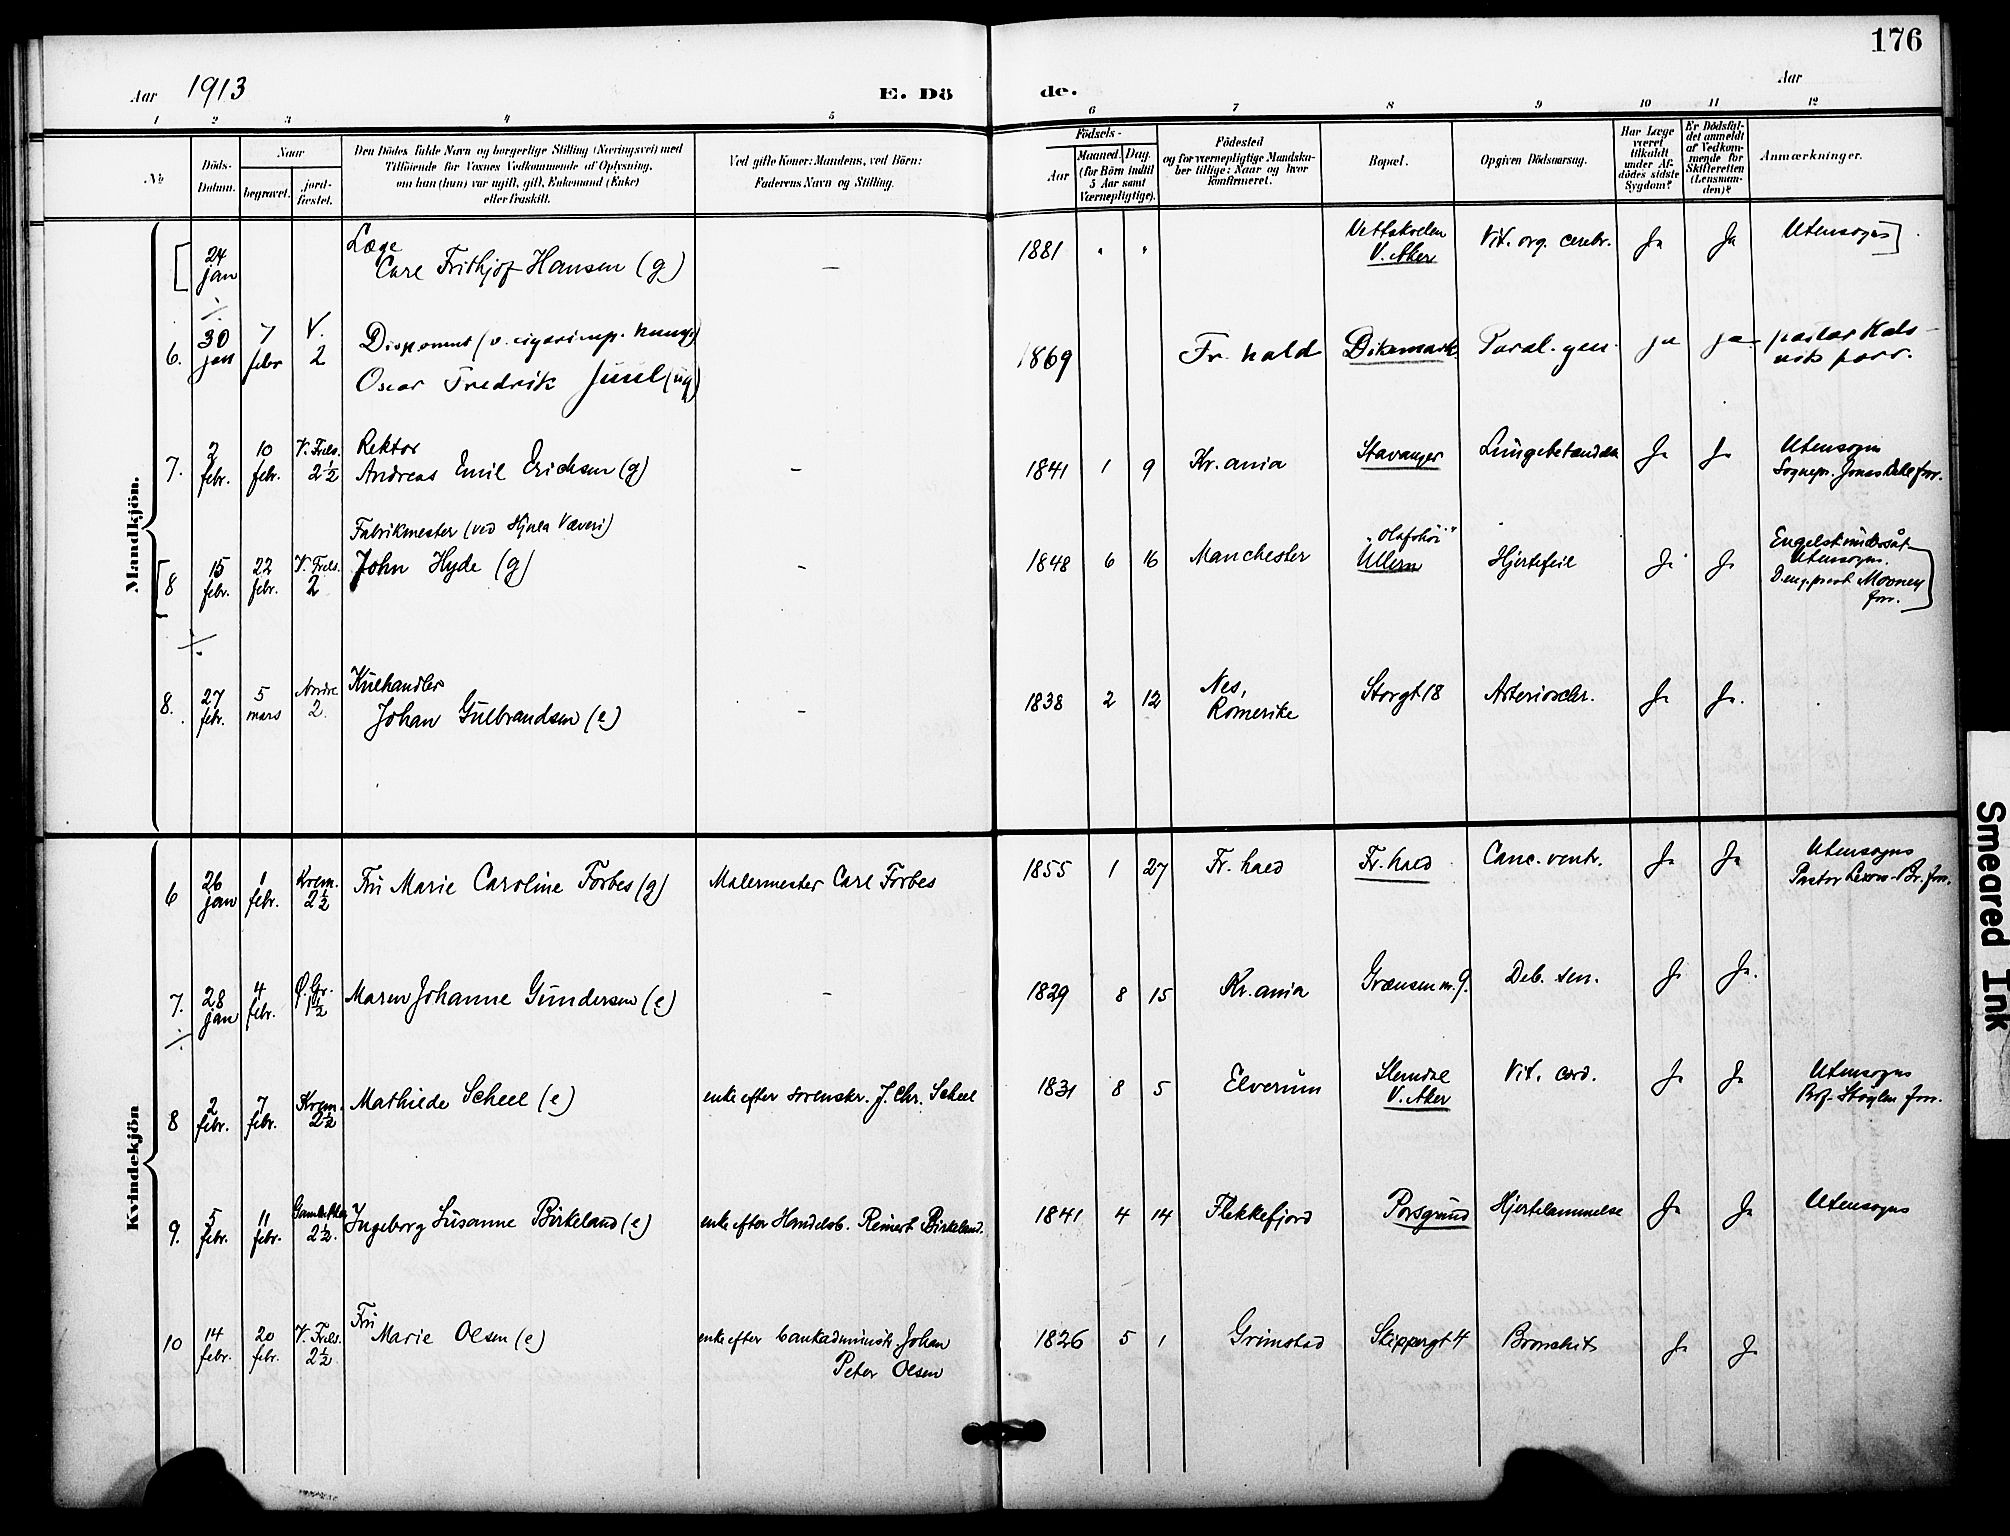 176
Aar 1913
E. Dö
de.
Aar
1 2 3 4 5 6 7 8 9 10 11 12
№
Döds-
Datum.
Naar
begravet.
jord-
fæstet.
Den Dödes fulde Navn og borgerlige Stilling (Næringsvei) med
Tilföiende for Voxnes Vedkommende af Oplysning,
om han (hun) var ugift, gift, Enkemand (Enke)
eller fraskilt.
Ved gifte Koner: Mandens, ved Börn:
Faderens Navn og Stilling.
Födsels-
Aar
Maaned. Dag.
(for Börn indtil
5 Aar samt
Værnepligtige).
Födested
og for værnepligtige Mandska-
ber tillige: Naar og hvor
konfirmeret.
Bopæl.
Opgiven Dödsaarsag.
Har Læge
været
tilkaldt
under Af-
dödes sidste
Sygdom?
Er Dödsfal-
det anmeldt
af Vedkom-
mende for
Skifteretten
(Lensman-
den)?
Anmærkninger.
Mandkjön.
[ 24 jan
Læge
Carl Frithjof Hansen (g)
–
1881 " "
Vettakollen
V. Aker
Vit. org. cerebr. Ja Ja Utensogns ]
6. 30 jan 7 febr V. 2
Disponent
Oscar Fredrik Juul (ug)
1869 Fr. hald Dikemark Paral. gen. ja ja pastor
forr.
7. 2 febr. 10 febr. V. Frels. 2½
Rektor
Andreas Emil Erichsen (g)
–
1841 1 9 Kr.ania Stavanger Lungebetændelse Ja Ja Utensogns
Sognepr. Jonas Dahl forr.
[ 8 15 febr. 22 febr. V. Frels. 2
Fabrikmester (ved Hjula Væveri)
John Hyde (g)
–
1848 6 16 Manchester
"Olafshöi"
Ullern
Hjertefeil Ja Ja
Engelsk undersåt
Utensogns.
D. eng. prest Mooney
forr. ]
8. 27 febr. 5 mars Nordre 2.
Kulhandler
Johan Gulbrandsen (e)
–
1838 2 12
Nes,
Romerike
Storgt 18 Arterioschr. Ja Ja.
Kvindekjön
6 26 jan 1 febr. Krem. 2½
Fru Marie Caroline Forbes (g)
Malermester Carl Forbes
1855 1 27 Fr. hald Fr. hald Canc. ventr. Ja Ja Utensogns
Pastor Br. forr.
7. 28 jan 4 febr. Ø. Gr. 1½
Maren Johanne Gundersen (e)
–
1829 8 15 Kr.ania Grænsen nr. 9. Deb. sen. Ja Ja.
8 2 febr. 7 febr. Krem. 2½
Mathilde Scheel (e)
enke efter sorenskr. J. Chr. Scheel
1831 8 5 Elverum
Slemdal
V. Aker
Vit. cord. Ja Ja Utensogns
Prof. Støylen forr.
9. 5 febr. 11 febr. Gamle Aker 2½.
Ingeborg Susanne Birkeland (e)
enke efter Handelsb. Reinert Birkeland.
1841 4 14 Flekkefjord Porsgrund Hjertelammelse Ja Ja Utensogns
10 14 febr. 20 febr. V. Frels. 2½
Fru
Marie Olsen (e)
enke efter bankadminstr. Johan
Peter Olsen
1826 5 1 Grimstad Skippergt 4 Bronchit Ja Ja
Smeared Ink